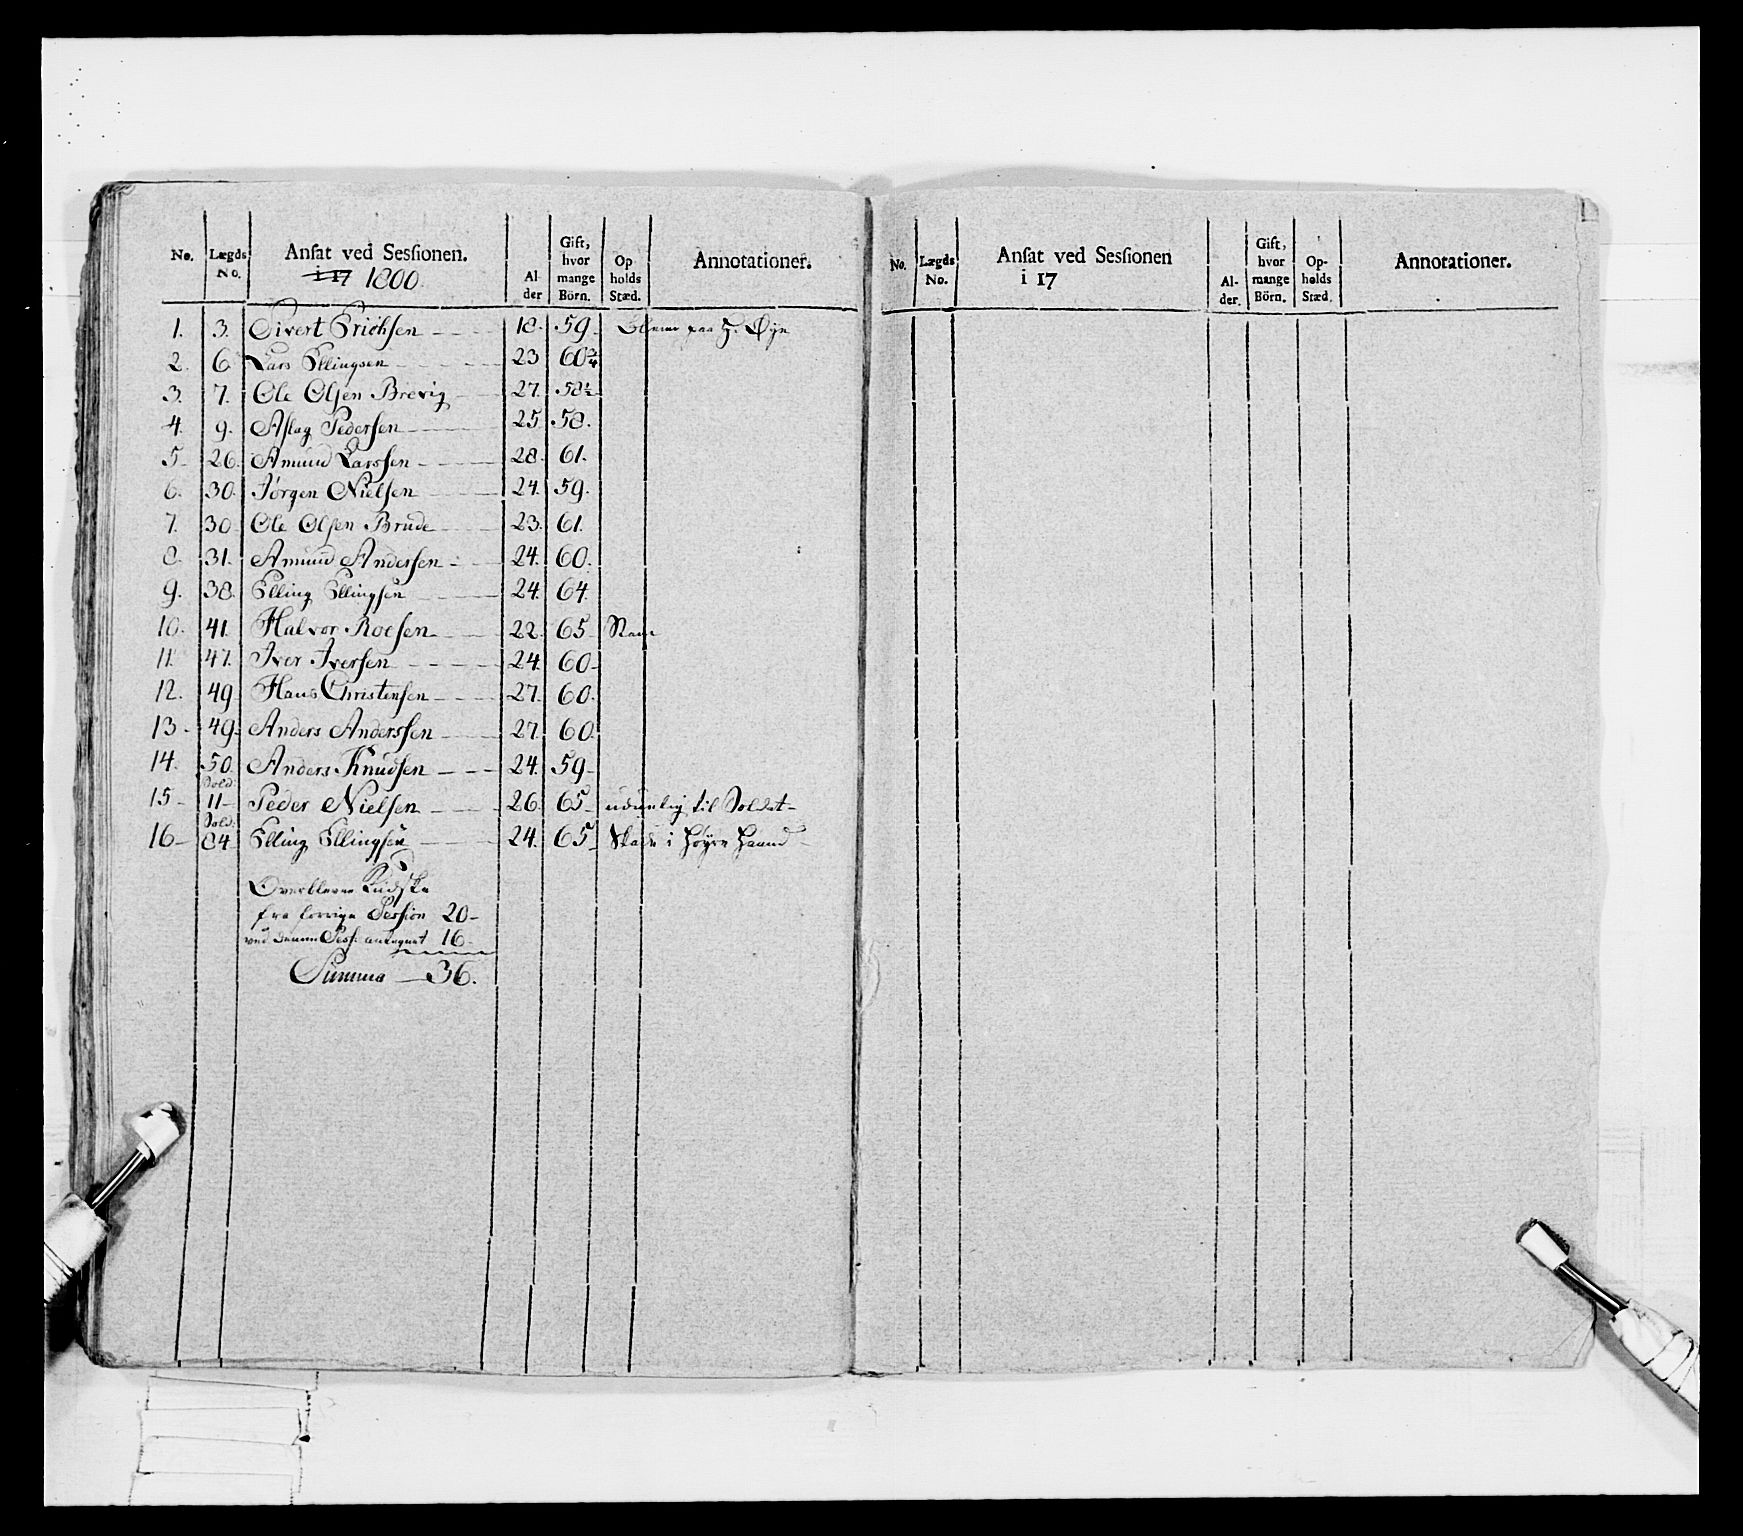 No. Lægds No. Ansat ved Sessionen. i 17 1800. Al- der Gift, hvor mange Börn. Op holds Stæd. Annotationer.
1. 3. Sivert Erichsen 18. 59. paa H. Øye
2. 6 Lars Ellingsen 23 60 3/4
3. 7. Ole Olsen Brevig 27. 58 1/2
4. 9. Aslag Pedersen 25 58.
5 26. Amund Larssen 28. 61.
6. 30. Jørgen Nielsen 24. 59.
7. 30 Ole Olsen Brude 23. 61.
8. 31. Amund Anderssen 24. 60.
9. 38. Elling Ellingsen 24. 64.
10. 41. Halvor Roesen 22. 65
11. 47. Iver Iversen 24. 60
12. 49 Hans Christensen 27. 60.
13 49 Anders Anderssen 27. 60.
14. 50. Anders Knudsen 24. 59
15 Sold: 11 Peder Nielsen 26. 65 uduelig til Soldat
16 Sold: 84 Elling Ellingsen 24. 65 Skade i høyre Haand
Overblevne Kudske
fra forrige Session 20
ved denne Sess: antegnet 16
Summa 36.
No. Lægds No. Ansat ved Sessionen i 17 Al- der. Gift, hvor mange Börn. Op- holds Stæd. Annotationer.